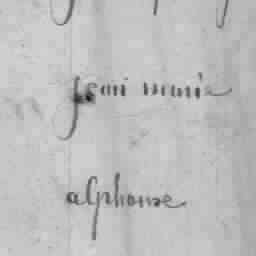 jean marie
alphonse